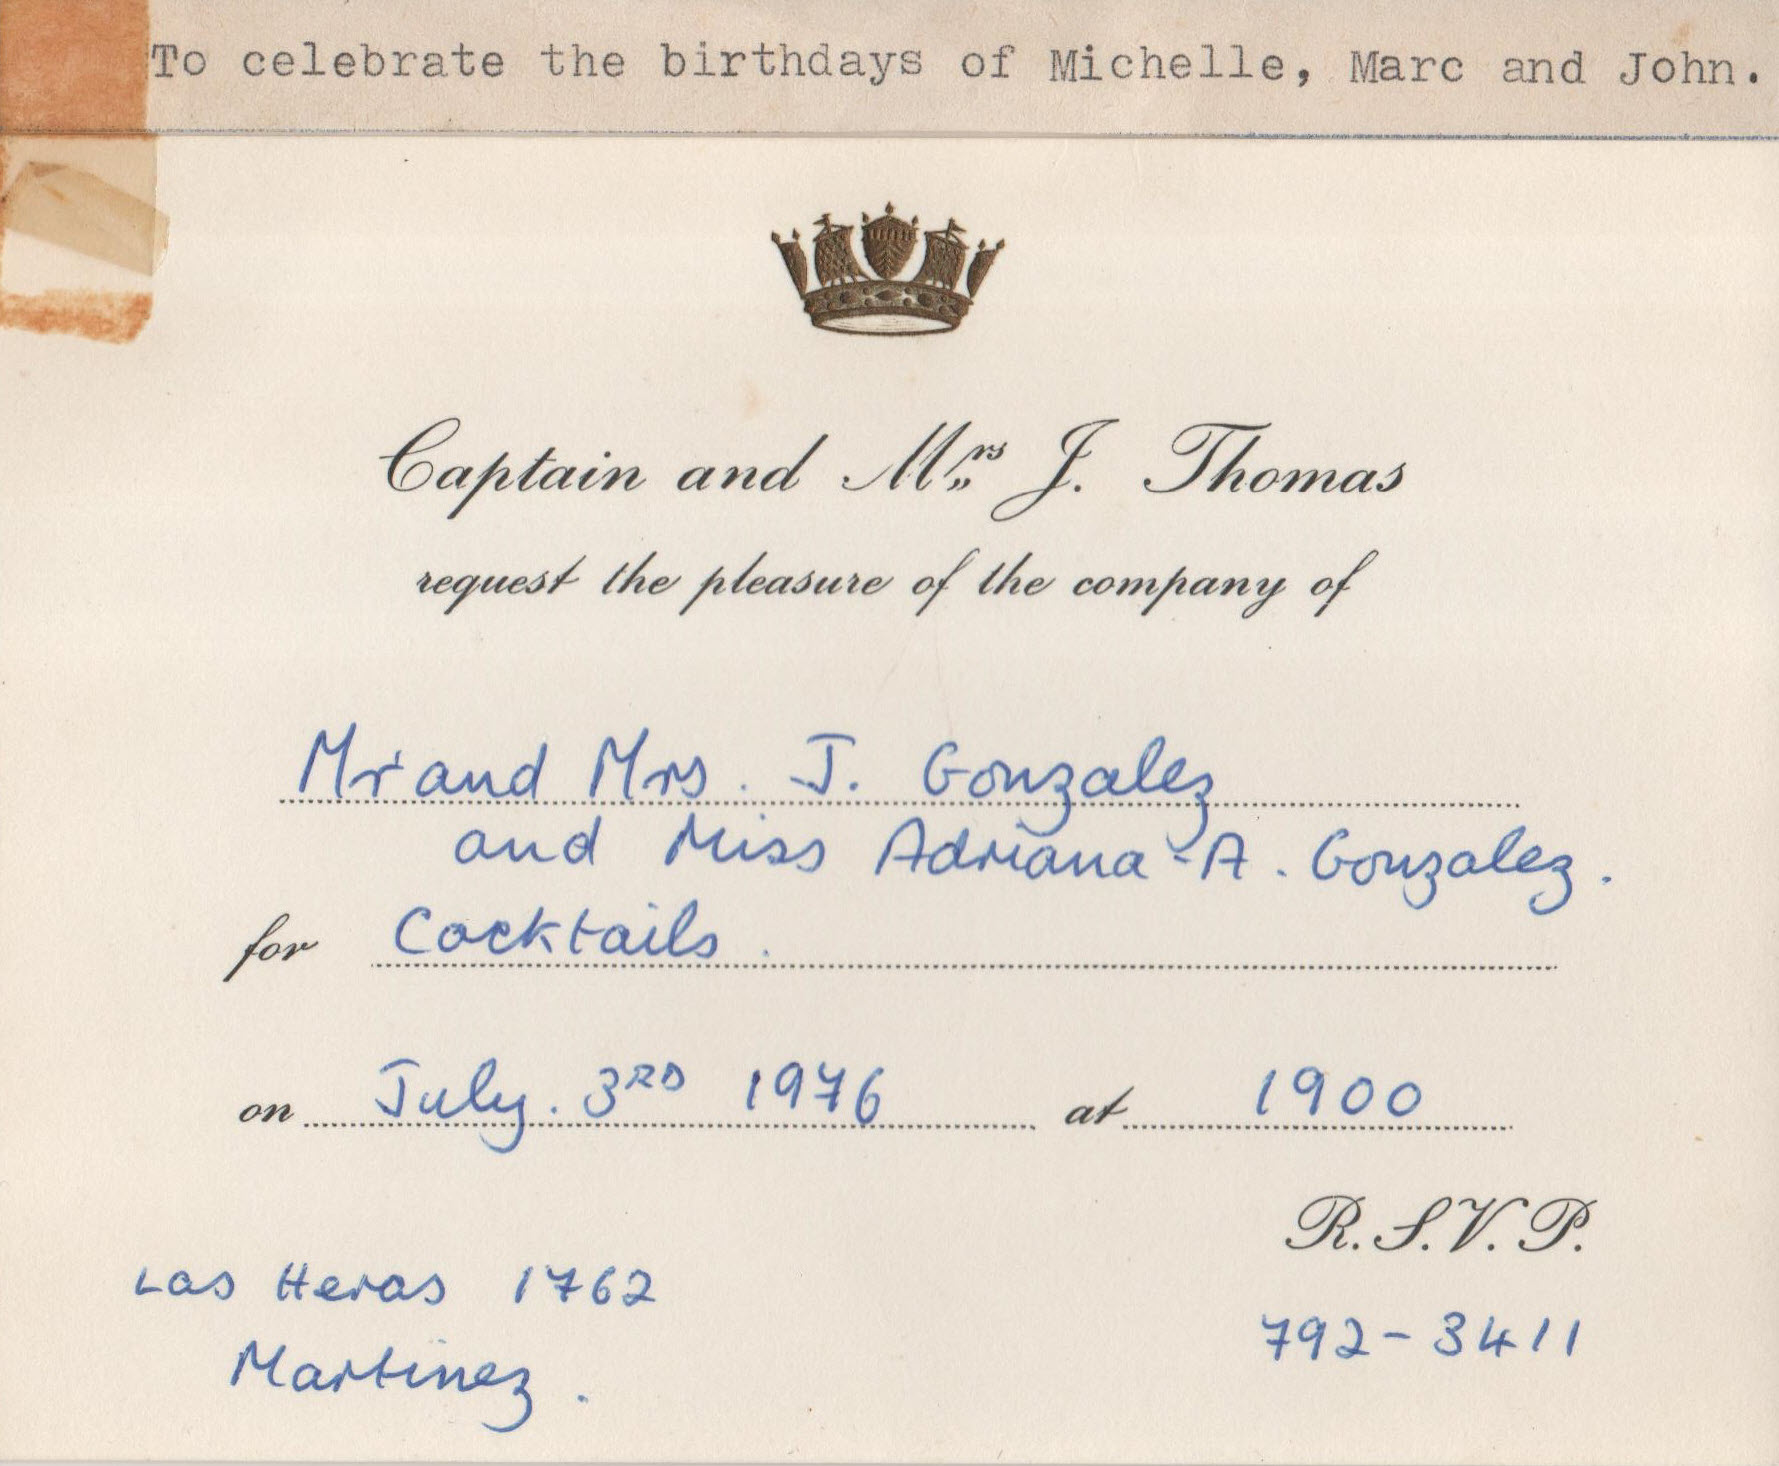 To celebrate the birthdays of Michelle, Marc and John.
Captain and Mrs J. Thomas
request the pleasure of the company of
Mr and Mrs. J. Gonzalez
and Miss Adriana-A. Gonzalez.
for Cocktails.
on July. 3RD 1976 at 1900
R.S.V.P.
Las Heras 1762
792-3411
Martinez.